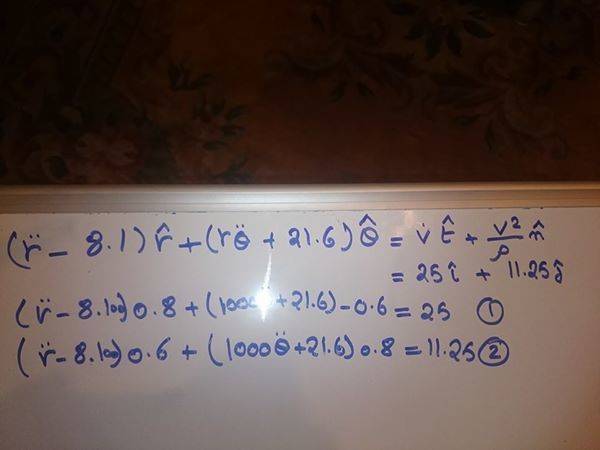 (r̈ - 8.1) r̂ + (rθ̈ + 21.6) θ̂ = v̇ t̂ + v²/ρ n̂
= 25 î + 11.25 ĵ
(r̈ - 8.100) 0.8 + (1000θ̈ + 21.6) - 0.6 = 25 ①
(r̈ - 8.100) 0.6 + (1000θ̈ + 21.6) 0.8 = 11.25 ②